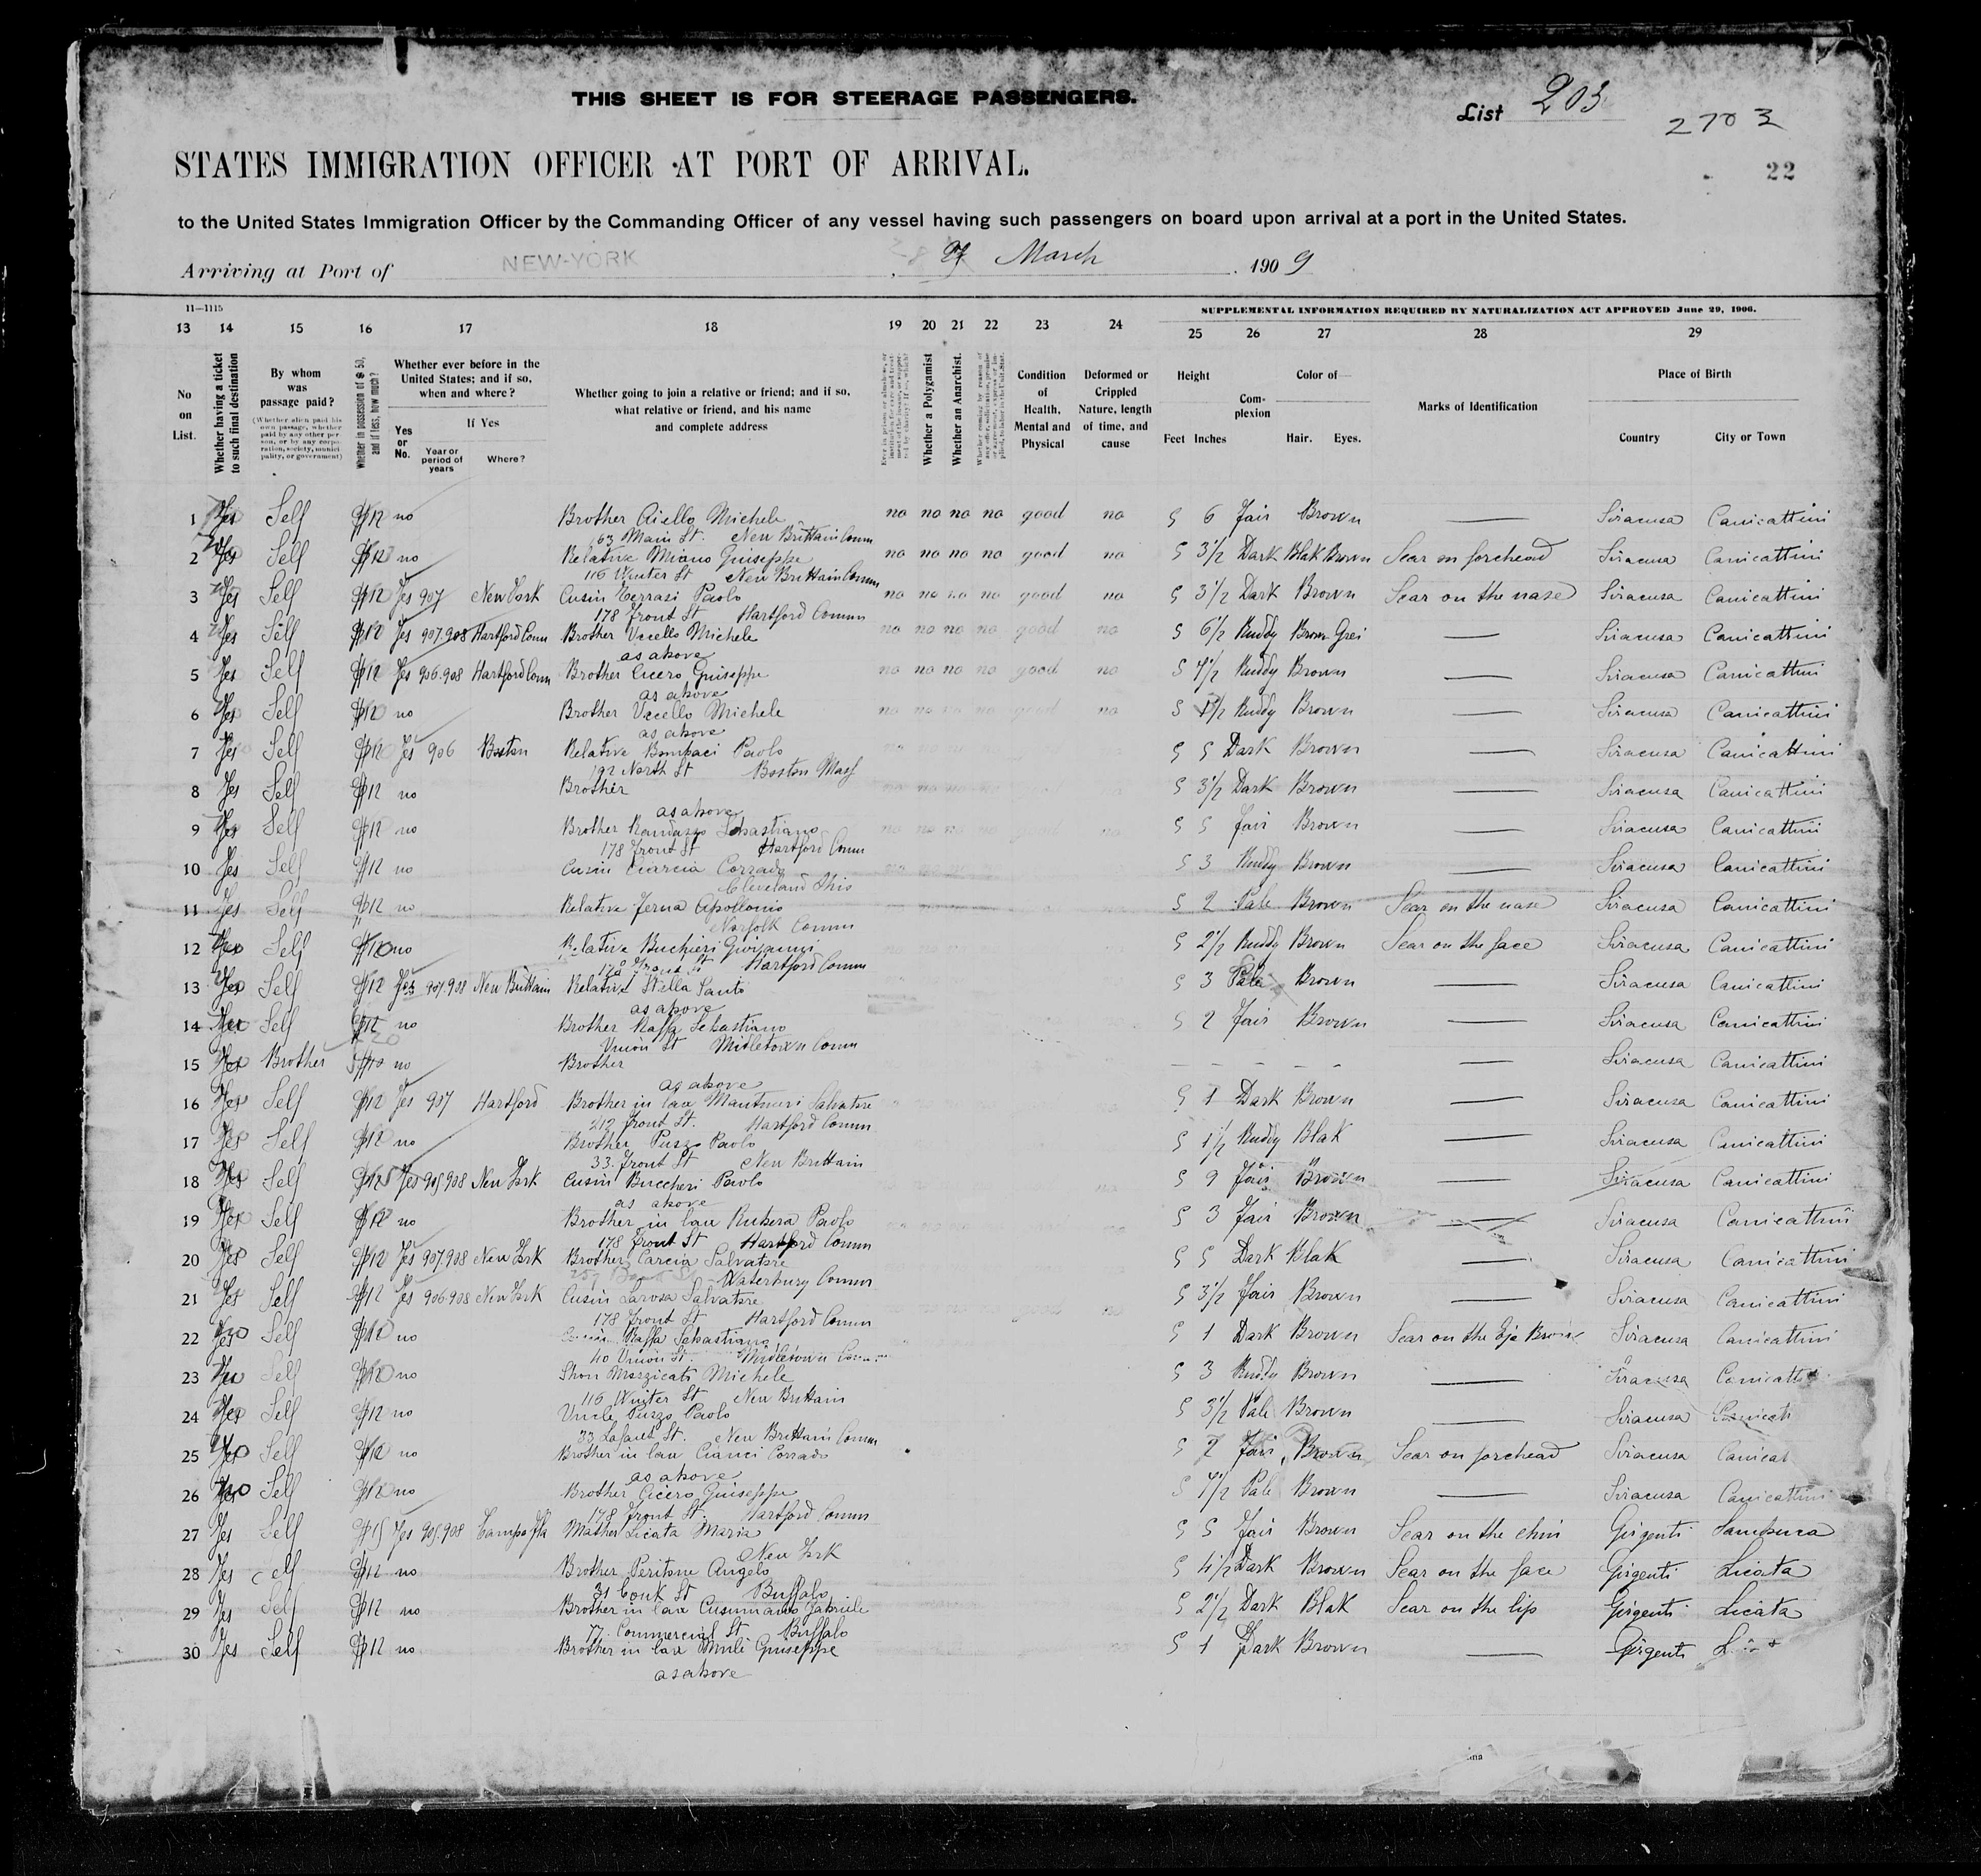 THIS SHEET IS FOR STEERAGE PASSENGERS.
List 203
2703
22
STATES IMMIGRATION OFFICER AT PORT OF ARRIVAL.
to the United States Immigration Officer by the Commanding Officer of any vessel having such passengers on board upon arrival at a port in the United States.
Arriving at Port of NEW-YORK, March 1909
11—1115
SUPPLEMENTAL INFORMATION REQUIRED BY NATURALIZATION ACT APPROVED June 29, 1906.
13 14 15 16 17 18 19 20 21 22 23 24 25 26 27 28 29
No on List.
Whether having a ticket to such final destination
By whom was passage paid?
(Whether alien paid his own passage, whether paid by any other person, or by any corporation, society, municipality, or government)
Whether in possession of $ 50, and if less, how much?
Whether ever before in the United States; and if so, when and where?
If Yes
Yes or No.
Year or period of years
Where?
Whether going to join a relative or friend; and if so, what relative or friend, and his name and complete address
Whether a Polygamist
Whether an Anarchist.
Condition of Health, Mental and Physical
Deformed or Crippled Nature, length of time, and cause
Height
Feet Inches
Complexion
Color of—
Hair. Eyes.
Marks of Identification
Place of Birth
Country
City or Town
1 Yes Self $12 no Brother Aiello Michele no no no no good no 5 6 Fair Brown — Siracusa Canicattini
63 Main St. New Brittain Conn
2 Yes Self $12 no Relative Miano Guiseppe no no no no good no 5 3 1/2 Dark Blak Brown Scar on forehead Siracusa Canicattini
116 Winter St New Brittain Conn
3 Yes Self $12 Yes 907 New York Cusin Terrasi Paolo no no no no good no 5 3 1/2 Dark Brown Scar on the nase Siracusa Canicattini
178 Front St Hartford Conn
4 Yes Self $12 Yes 907.908 Hartford Conn Brother Uccello Michele no no no no good no 5 6 1/2 Ruddy Brown Grei — Siracusa Canicattini
as above
5 Yes Self $12 Yes 906.908 Hartford Conn Brother Cicero Guiseppe no no no no good no 5 4 1/2 Ruddy Brown — Siracusa Canicattini
as above
6 Yes Self $12 no Brother Uccello Michele no no no no good no 5 1/2 Ruddy Brown — Siracusa Canicattini
as above
7 Yes Self $12 Yes 906 Boston Relative Bombaci Paolo 5 5 Dark Brown — Siracusa Canicattini
192 North St Boston Mass
8 Yes Self $12 no Brother 5 3 1/2 Dark Brown — Siracusa Canicattini
as above
9 Yes Self $12 no Brother Randazzo Sebastiano 5 5 Fair Brown — Siracusa Canicattini
178 Front St Hartford Conn
10 Yes Self $12 no Cusin Ciarcia Corrado 5 3 Ruddy Brown — Siracusa Canicattini
Cleveland Ohio
11 Yes Self $12 no Relative Ferna Apollonio 5 2 Pale Brown Scar on the nase Siracusa Canicattini
Norfolk Conn
12 Yes Self $12 no Relative Buchieri Giovanni 5 2 1/2 Ruddy Brown Scar on the face Siracusa Canicattini
178 Front St Hartford Conn
13 Yes Self $12 Yes 907.908 New Brittain Relative Stella Santo 5 3 Pale Brown — Siracusa Canicattini
as above
14 Yes Self $12 no Brother Raffa Sebastiano 5 2 Fair Brown — Siracusa Canicattini
$20
Union St Midletown Conn
15 Yes Brother no Brother – – – – — Siracusa Canicattini
as above
16 Yes Self $12 Yes 907 Hartford Brother in law Mantineri Salvatore 5 1 Dark Brown — Siracusa Canicattini
212 Front St. Hartford Conn
17 Yes Self $12 no Brother Puzzo Paolo 5 1 1/2 Ruddy Blak — Siracusa Canicattini
33. Front St New Brittain
18 Yes Self Yes 905.908 New York Cusin Buccheri Paolo 5 9 Fair Brown — Siracusa Canicattini
as above
19 Yes Self $12 no Brother in law Rubera Paolo 5 3 Fair Brown — Siracusa Canicattini
178 Front St Hartford Conn
20 Yes Self $12 Yes 907.908 New York Brother Carcia Salvatore 5 5 Dark Blak — Siracusa Canicattini
Waterbury Conn
21 Yes Self $12 Yes 906.908 New York Cusin Larosa Salvatore 5 3 1/2 Fair Brown — Siracusa Canicattini
178 Front St Hartford Conn
22 Yes Self $12 no Raffa Sebastiano 5 1 Dark Brown Scar on the Eje Siracusa Canicattini
40 Union St. Midletown Conn
23 Yes Self $12 no Mazzicati Michele 5 3 Ruddy Brown — Siracusa
116 Winter St New Brittain
24 Yes Self $12 no Uncle Puzzo Paolo 5 3 1/2 Pale Brown — Siracusa
33 Lafaiet St. New Brittain Conn
25 Self $12 no Brother in law Cianci Corrado 5 2 Fair Brown Scar on forehead Siracusa Canicat
as above
26 Self $12 no Brother Cicero Guiseppe 5 1/2 Pale Brown — Siracusa Canicattini
178 Front St. Hartford Conn
27 Yes Self $15 Yes 905.908 Tampa Fla Mather Licata Maria 5 5 Fair Brown Scar on the chin Girgenti Sambuca
New York
28 Yes Self $12 no Brother Peritore Angelo 5 4 1/2 Dark Brown Scar on the face Girgenti Licata
31 Couk St Buffalo
29 Yes Self $12 no Brother in law Cusumano Gabriele 5 2 1/2 Dark Blak Scar on the lip Girgenti Licata
77. Commercial St Buffalo
30 Yes Self $12 no Brother in law Mulè Guiseppe 5 1 Dark Brown — Girgenti
as above